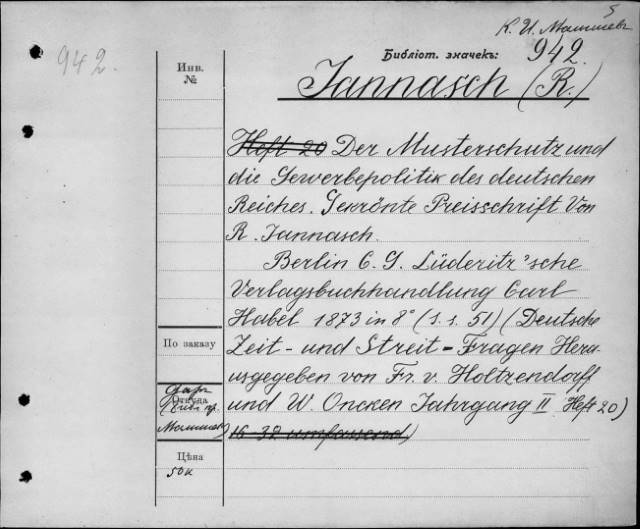 К. И. Малышевъ
942.
Библіот. значекъ: 942.
Инв. №
Jannasch (R.)
Heft 20 Der Musterschutz und
die Gewerbepolitik des deutschen
Reiches. Gekrönte Preisschrift Von
R. Jannasch.
Berlin C. G. Lüderitz'sche
Verlagsbuchhandlung Carl
Habel 1873 in 8° (S. s. 51) (Deutsche
По заказу
Zeit- und Streit-Fragen Hera
usgegeben von Fr. v. Holtzendorff
Откуда
und W. Oncken Jahrgang II Heft 20)
16-32 umfassend)
Цѣна
50к